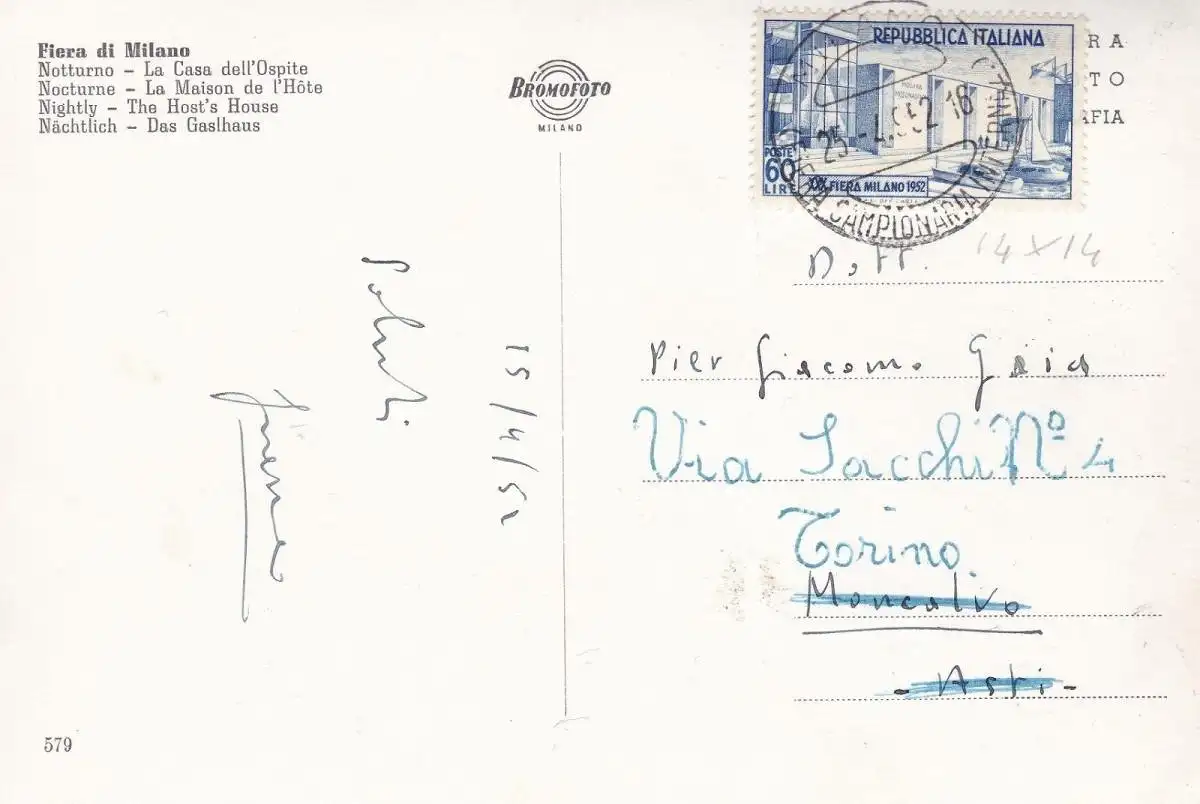 Fiera di Milano
Notturno – La Casa dell'Ospite
Nocturne – La Maison de l'Hôte
Nightly – The Host's House
Nächtlich – Das Gaslhaus
BROMOFOTO
MILANO
REPUBBLICA ITALIANA
POSTE
60
LIRE
XXX FIERA MILANO 1952
25 - 4.952 16
CAMPIONARIA INTERNAZ
RA
TO
AFIA
14 x 14
Dott.
Pier Giacomo Gaia
Via Sacchi Nº 4
Torino
Moncalvo
- Asti -
Saluti
15/4/52
579